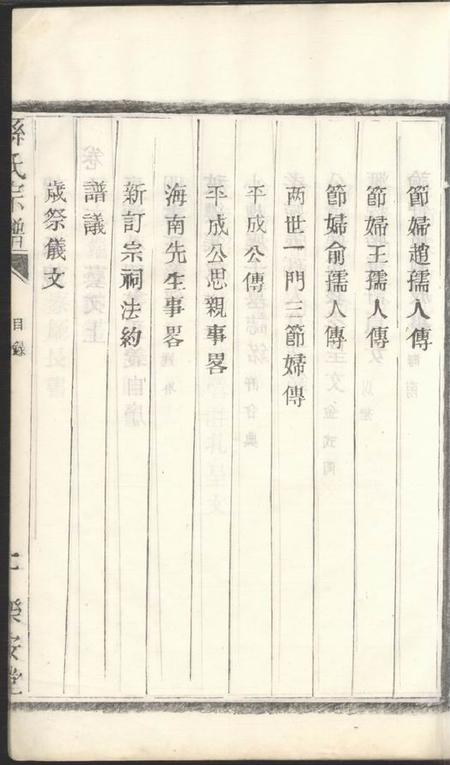 節婦趙孺人傳
節婦王孺人傳
節婦俞孺人傳
两世一門三節婦傳
平成公傳
平成公思親事畧
海南先生事畧
新訂宗祠法約
譜議
歲祭儀文
孫氏宗譜
目錄
樂安堂